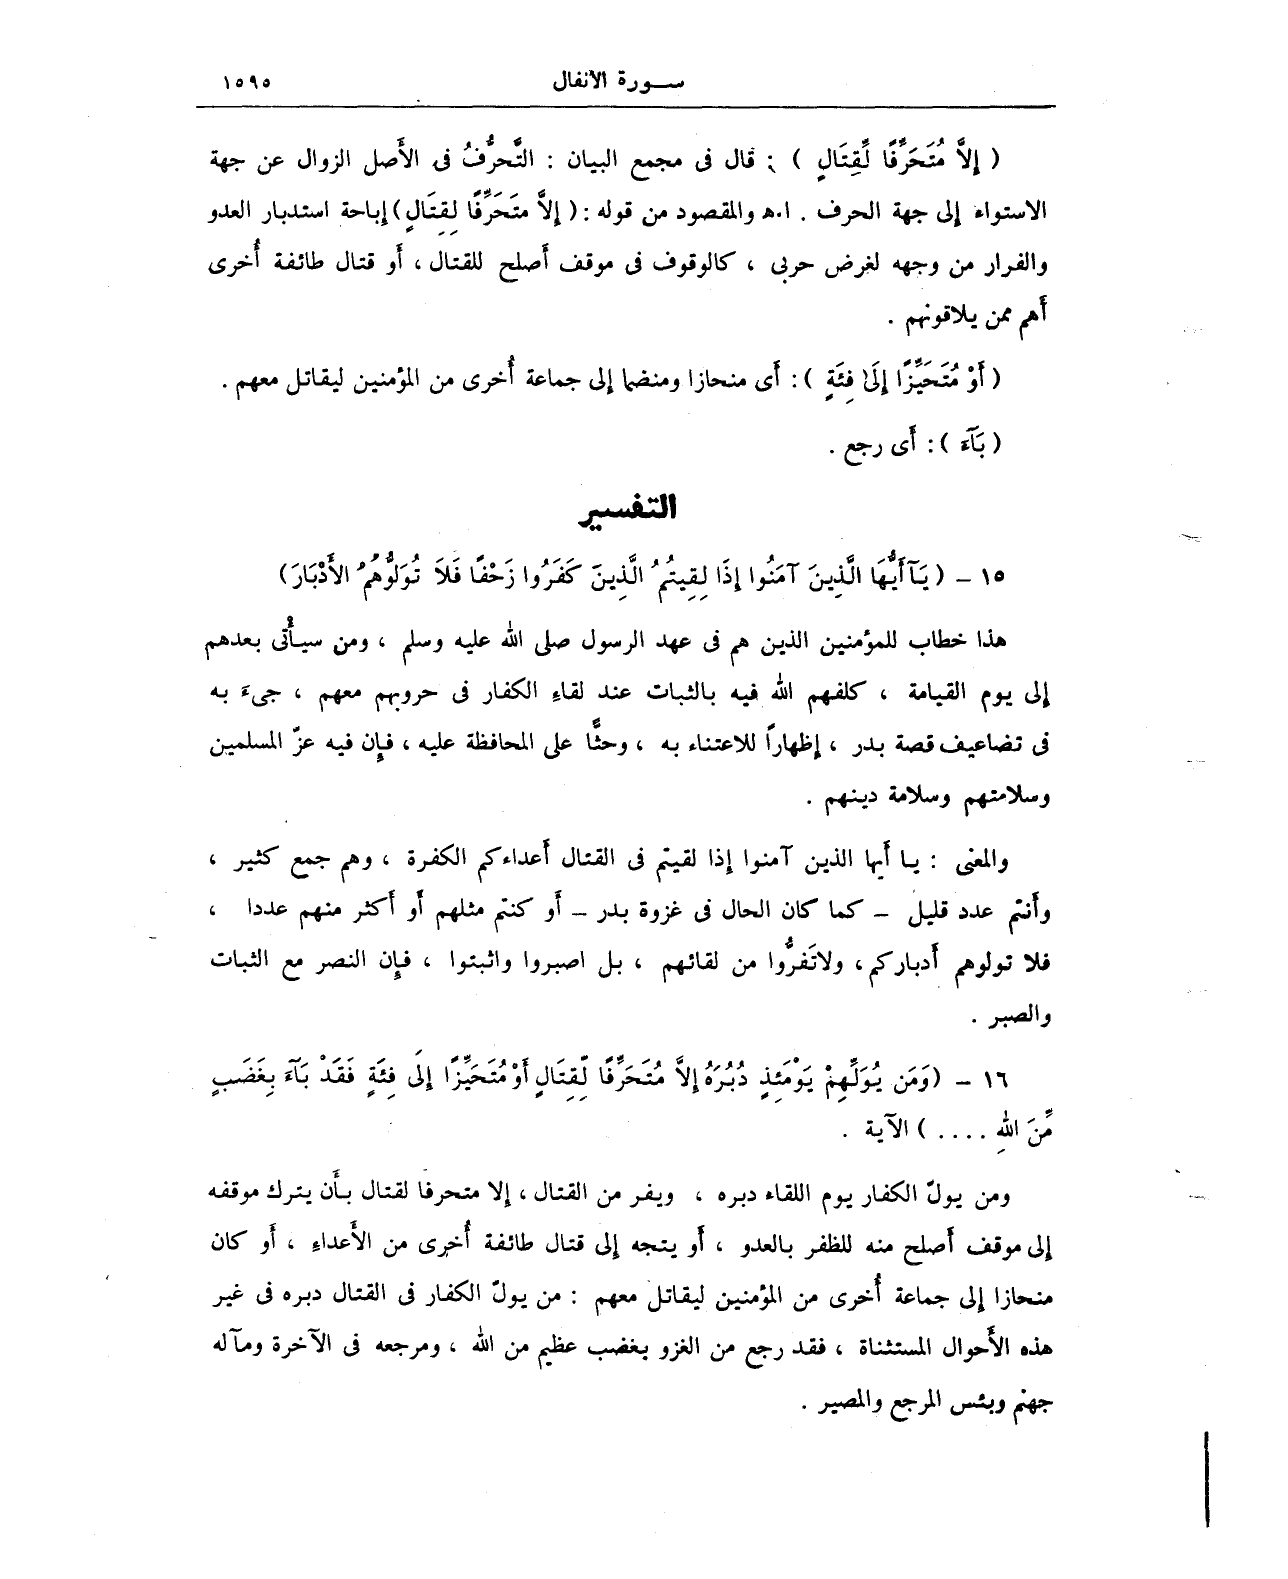 سورة الأنفال ١٥٩٥
( إِلاَّ مُتَحَرِّفًا لِّقِتَالٍ ) : قال فى مجمع البيان : التَّحرُّفُ فى الأَصل الزوال عن جهة
الاستواء إلى جهة الحرف . ا.ه والمقصود من قوله : ( إِلاَّ مُتَحَرِّفًا لِقِتَالٍ ) إباحة استدبار العدو
والفرار من وجهه لغرض حربى ، كالوقوف فى موقف أَصلح للقتال ، أَو قتال طائفة أُخرى
أَهم ممن يلاقونهم .
( أَوْ مُتَحَيِّزًا إِلَىٰ فِئَةٍ ) : أَى منحازا ومنضما إلى جماعة أُخرى من المؤمنين ليقاتل معهم .
( بَآءَ ) : أَى رجع .
التفسير
١٥ – ( يَآ أَيُّهَا الَّذِينَ آمَنُوا إِذَا لَقِيتُمُ الَّذِينَ كَفَرُوا زَحْفًا فَلاَ تُوَلُّوهُمُ الأَدْبَارَ )
هذا خطاب للمؤمنين الذين هم فى عهد الرسول صلى الله عليه وسلم ، ومن سيأْتى بعدهم
إلى يوم القيامة ، كلفهم الله فيه بالثبات عند لقاءِ الكفار فى حروبهم معهم ، جىءَ به
فى تضاعيف قصة بدر ، إظهاراً للاعتناء به ، وحثًّا على المحافظة عليه ، فإِن فيه عزّ المسلمين
وسلامتهم وسلامة دينهم .
والمعنى : يا أَيها الذين آمنوا إذا لقيتم فى القتال أَعداءكم الكفرة ، وهم جمع كثير ،
وأَنتم عدد قليل – كما كان الحال فى غزوة بدر – أَو كنتم مثلهم أَو أَكثر منهم عددا ،
فلا تولوهم أَدباركم ، ولا تَفرُّوا من لقائهم ، بل اصبروا واثبتوا ، فإِن النصر مع الثبات
والصبر .
١٦ – ( وَمَن يُوَلِّهِمْ يَوْمَئِذٍ دُبُرَهُ إِلاَّ مُتَحَرِّفًا لِّقِتَالٍ أَوْ مُتَحَيِّزًا إِلَى فِئَةٍ فَقَدْ بَآءَ بِغَضَبٍ
مِّنَ اللهِ .... ) الآية .
ومن يولّ الكفار يوم اللقاء دبره ، ويفر من القتال ، إلا متحرفا لقتال بأَن يترك موقفه
إلى موقف أَصلح منه للظفر بالعدو ، أَو يتجه إلى قتال طائفة أُخرى من الأَعداءِ ، أَو كان
منحازا إلى جماعة أُخرى من المؤمنين ليقاتل معهم : من يولّ الكفار فى القتال دبره فى غير
هذه الأَحوال المستثناة ، فقد رجع من الغزو بغضب عظيم من الله ، ومرجعه فى الآخرة ومآله
جهنم وبئس المرجع والمصير .